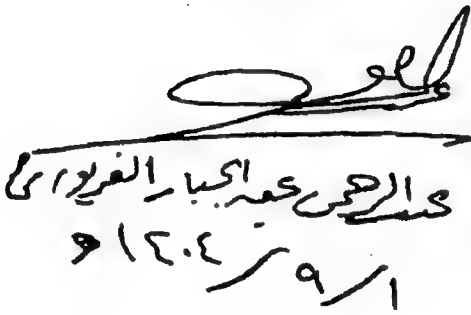 عبد الرحمن عبد الجبار الفريوائي
١/٩/١٤٠٤ هـ